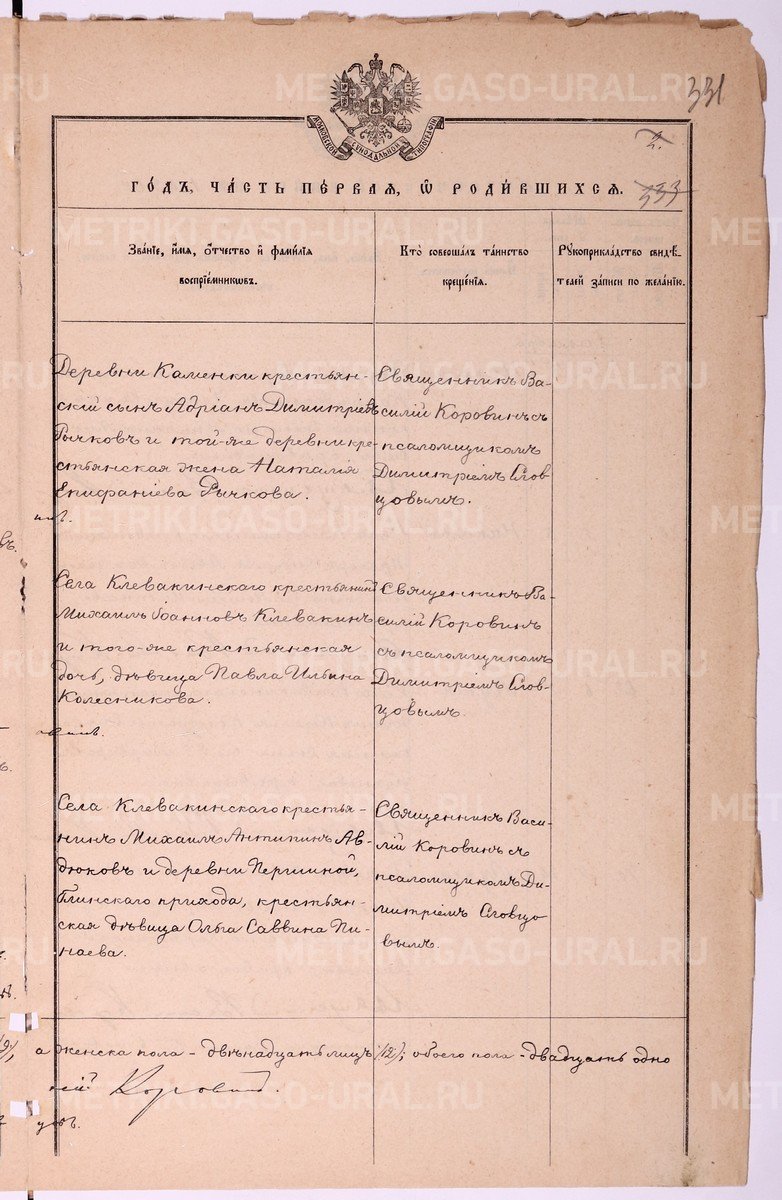 331
МОСКОВСКОЙ СѴНОДАЛЬНОЙ ТИПОГРАФІИ
2.
ГОДЪ, ЧАСТЬ ПЕРВАЯ, Ѿ РОДИВШИХСЯ.
333
Званіе, имя, отчество и фамилія воспріемниковъ.
Кто совершалъ таинство крещенія.
Рукоприкладство свидѣтелей записи по желанію.
Деревни Каменки крестьян-
скій сынъ Адріанъ Димитріевъ
Рычковъ и той-же деревни кре-
стьянская жена Наталія
Епифаніева Рычкова.
Священникъ Ва-
силій Коровинъ съ
псаломщикомъ
Димитріемъ Слов-
цовымъ.
Села Клевакинскаго крестьянинъ
Михаилъ Іоанновъ Клевакинъ
и того-же крестьянская
дочь, дѣвица Павла Ильина
Колесникова.
Священникъ Ва-
силій Коровинъ
съ псаломщикомъ
Димитріемъ Слов-
цовымъ.
Села Клевакинскаго крестья-
нинъ Михаилъ Антипинъ Ав-
дюковъ и деревни Першиной,
прихода, крестьян-
ская дѣвица Ольга Саввина Пи-
наева.
Священникъ Васи-
лій Коровинъ съ
псаломщикомъ Ди-
митріемъ Словцо-
вымъ.
а женска пола - двѣнадцать лицъ /12/; обоего пола - двадцать одно
Коровинъ.
METRIKI.GASO-URAL.RU